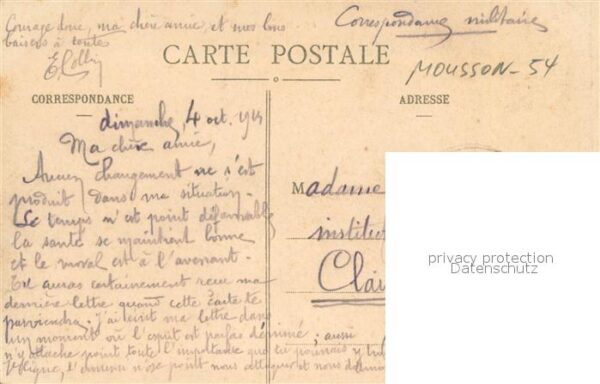 Courage donc, ma chère amie, et mes bons
baisers à toutes
Correspondance militaire
CARTE POSTALE
MOUSSON-54
CORRESPONDANCE
ADRESSE
dimanche, 4 oct.
Ma chère amie,
Aucun changement ne s'est
produit dans ma situation.
Le temps n'est point défavorable
la santé se maintient bonne
et le moral est à l'avenant.
auras certainement reçu ma
dernière lettre quand cette carte te
parviendra. J'ai écrit ma lettre dans
un moment où l'esprit est parfois déprimé; aussi
n'y attache point toute l'importance que tu pourrais y
l'ennemi n'ose point nous attaquer et nous
Madame
institu
Clai
privacy protection
Datenschutz